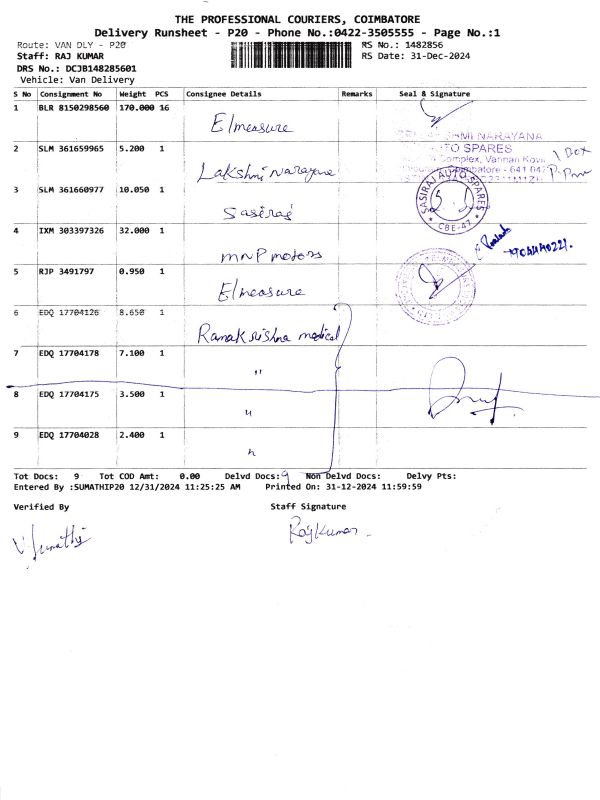 THE PROFESSIONAL COURIERS, COIMBATORE
Delivery Runsheet - P20 - Phone No.:0422-3505555 - Page No.:1
Route: VAN DLY - P20
RS No.: 1482856
Staff: RAJ KUMAR
RS Date: 31-Dec-2024
DRS No.: DCJB148285601
Vehicle: Van Delivery
S No Consignment No Weight PCS Consignee Details Remarks Seal & Signature
1 BLR 8150298560 170.000 16 Elmeasure
2 SLM 361659965 5.200 1 Lakshmi Narayana
SHMI NARAYANA
TO SPARES
Complex, Vannan Kovi
1 Box
3 SLM 361660977 10.050 1 Sasiraj
SASIRAJ AUTO SPARES
CBE-47
4 IXM 303397326 32.000 1 MNP motors
5 RJP 3491797 0.950 1 Elmeasure
6 EDQ 17704126 8.650 1 Ramakrishna medical
7 EDQ 17704178 7.100 1 "
8 EDQ 17704175 3.500 1 "
9 EDQ 17704028 2.400 1 "
Tot Docs: 9 Tot COD Amt: 0.00 Delvd Docs: 9 Non Delvd Docs: Delvy Pts:
Entered By :SUMATHIP20 12/31/2024 11:25:25 AM Printed On: 31-12-2024 11:59:59
Verified By Staff Signature
V. Sumathi RajKumar